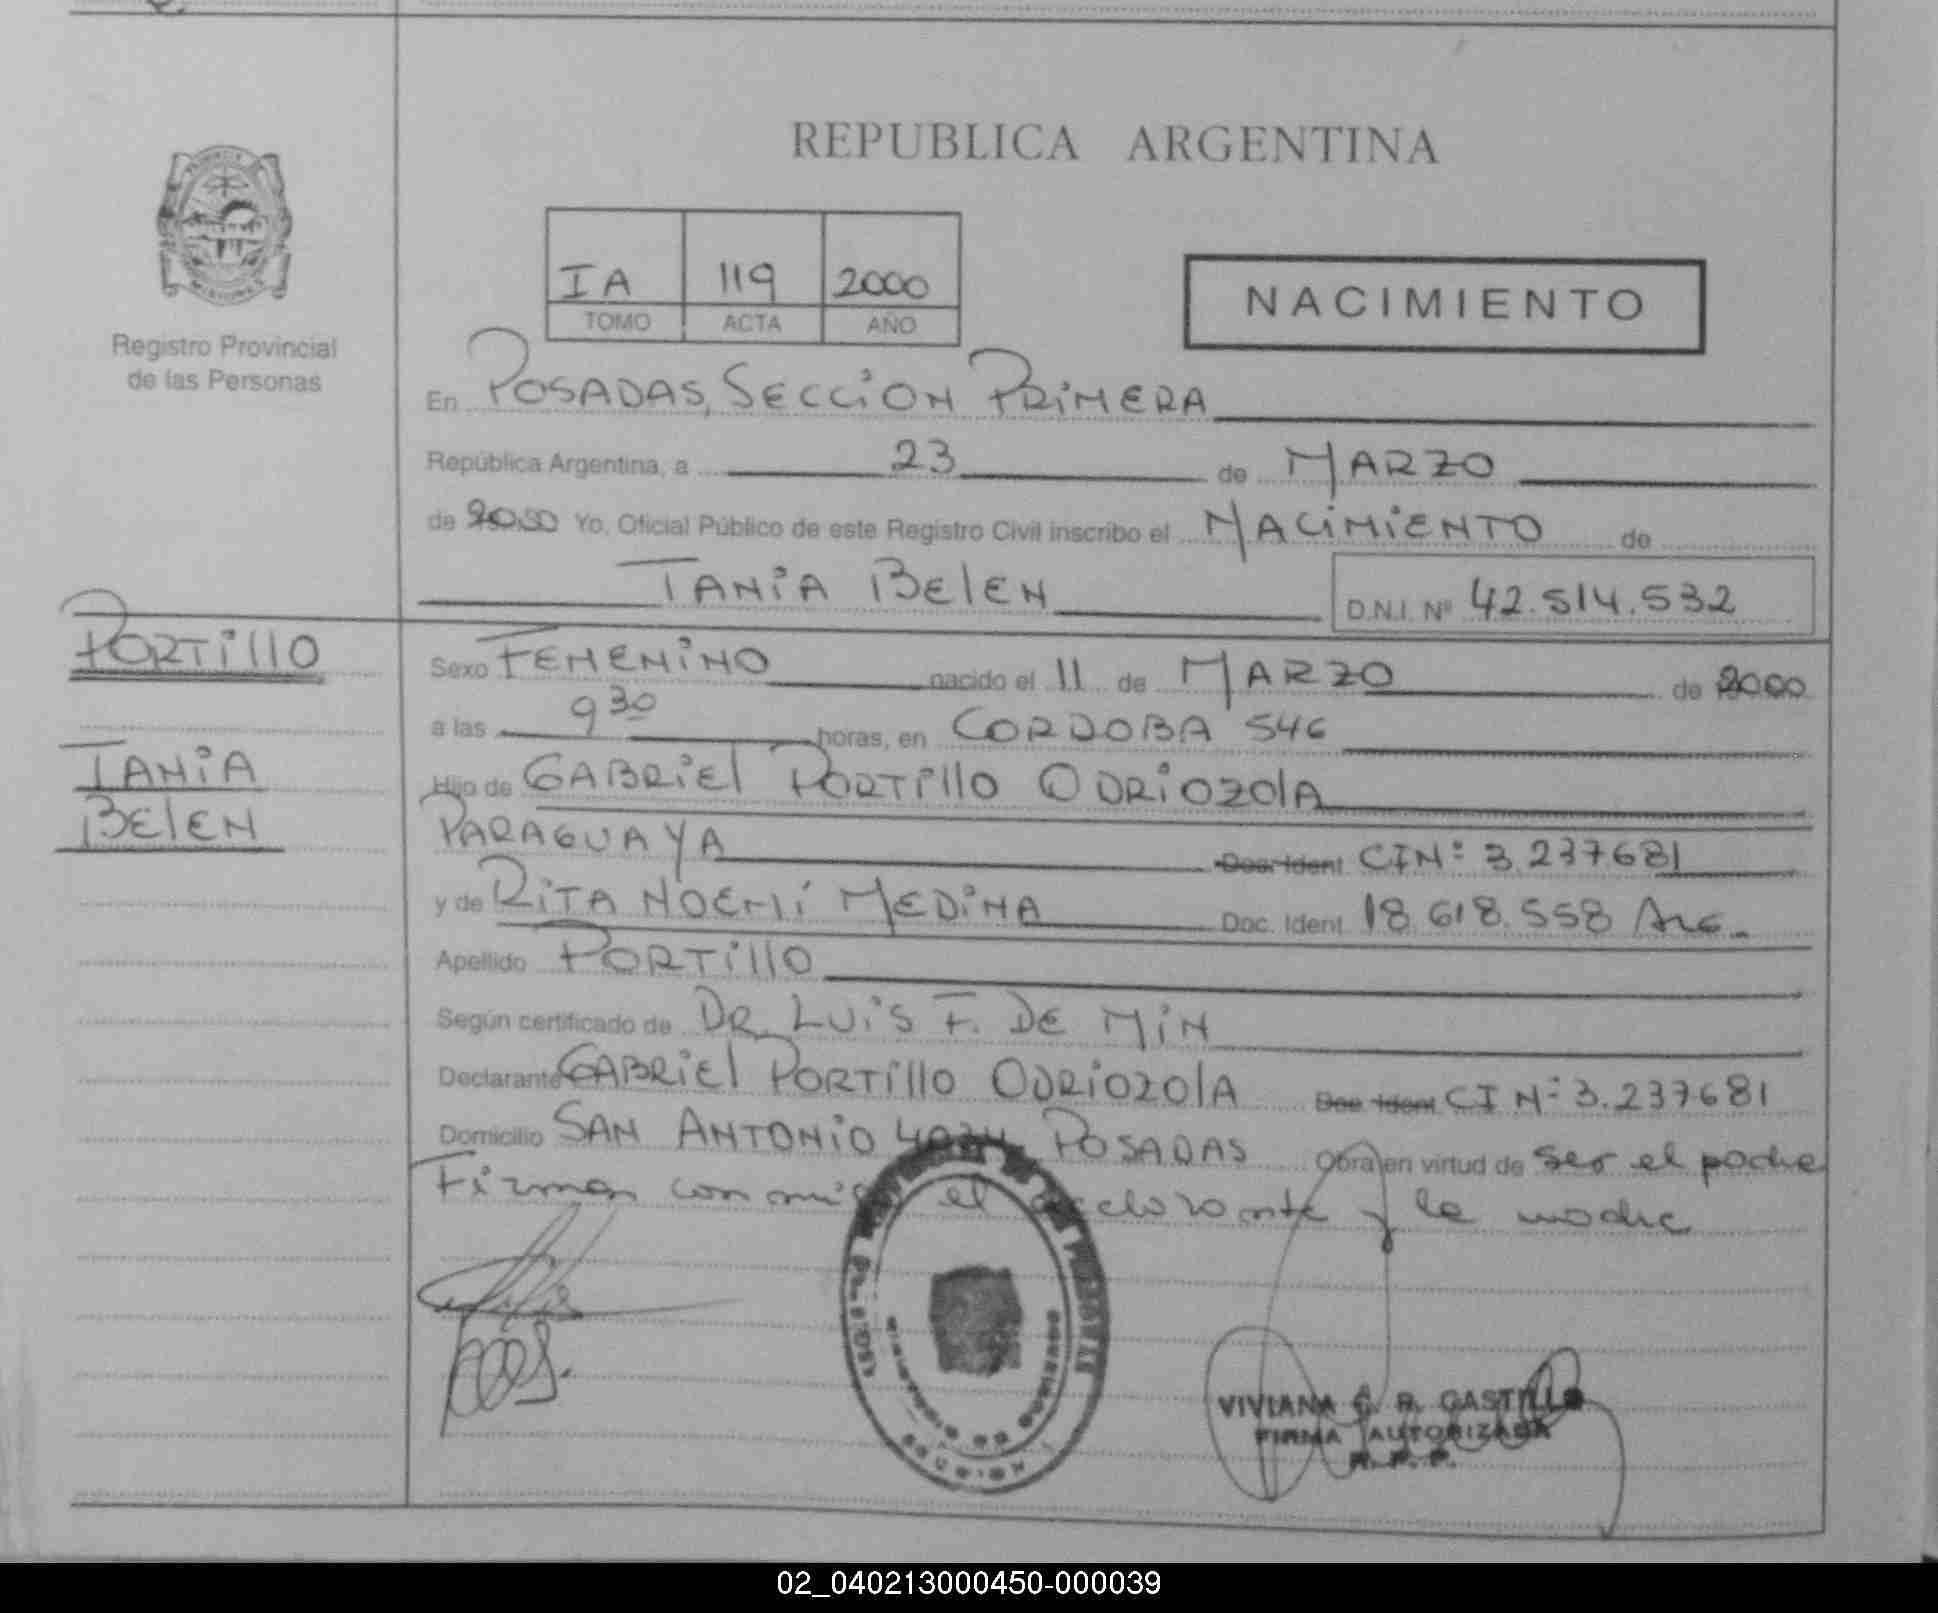 REPUBLICA ARGENTINA
IA 119 2000
TOMO ACTA AÑO
NACIMIENTO
Registro Provincial
de las Personas
En POSADAS, SECCION PRIMERA
República Argentina, a 23 de MARZO
de 2000 Yo, Oficial Público de este Registro Civil inscribo el NACIMIENTO de
TANIA BELEN D.N.I. Nº 42.514.532
PORTILLO
TANIA
BELEN
Sexo FEMENINO nacido el 11 de MARZO de 2000
a las 9 30 horas, en CORDOBA 546
Hijo de GABRIEL PORTILLO ODRIOZOLA
PARAGUAYA Doc. Ident CIN: 3.237681
y de RITA NOEMÍ MEDINA Doc. Ident 18.618.558 ARG.
Apellido PORTILLO
Según certificado de DR. LUIS F. DE MIN
Declarante GABRIEL PORTILLO ODRIOZOLA Doc Ident CI N: 3.237681
Domicilio SAN ANTONIO POSADAS Obra en virtud de ser el padre
Firman con el declarante y la madre
VIVIANA R. CASTILLO
FIRMA AUTORIZADA
R. P. P.
02_040213000450-000039